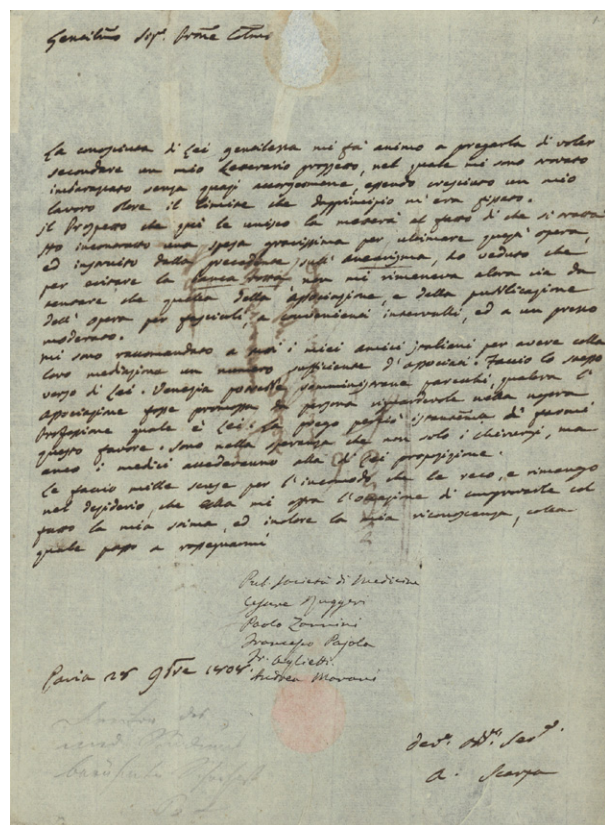 Gentilmo Sigr. Prone Colmo
La conosciuta di Lei gentilezza mi fà animo a pregarla di voler
secondare un mio Letterario progetto, nel quale mi sono trovato
interessato senza quasi accorgermene, essendo cresciuto un mio
lavoro oltre il limite che dapprincipio m'era fissato.
Il Prospetto che quì le unisco la metterà al fatto di che si tratta
Ho incontrato una spesa gravissima per ultimare quest' opera,
ed instruito dalla precedente sull' aneurisma, ho veduto che
per evitare la non mi rimaneva altra via da
tentare che quella della associazione, e della pubblicazione
dell' opera per fascicoli, a convenienti intervalli, ed a un prezzo
moderato.
Mi sono raccomandato a tutti i miei amici Italiani per avere colla
loro mediazione un numero sufficiente d' associati. Faccio lo stesso
verso di Lei. Venezia potrebbe somministrare parecchi, qualora l'
associazione fosse promossa da persona riguardevole nella nostra
Professione quale è Lei. La prego perciò istantemte di farmi
questo favore. Sono nella speranza che non solo i chirurgi, ma
anco i medici accederanno alla di Lei proposizione.
Le faccio mille scuse per l'incomodo che le reco, e rimango
nel desiderio, che Ella mi offra l'occasione di comprovarle col
fatto la mia stima, ed inoltre la mia riconoscenza, colla
quale passo a rassegnarmi
Società di Medicina
Cesare Ruggeri
Paolo Zannini
Francesco Pajola
Fr. Aglietti
Andrea Morani
Pavia 28 9bre 1808.
devo. obbo. Sero.
A. Scarpa